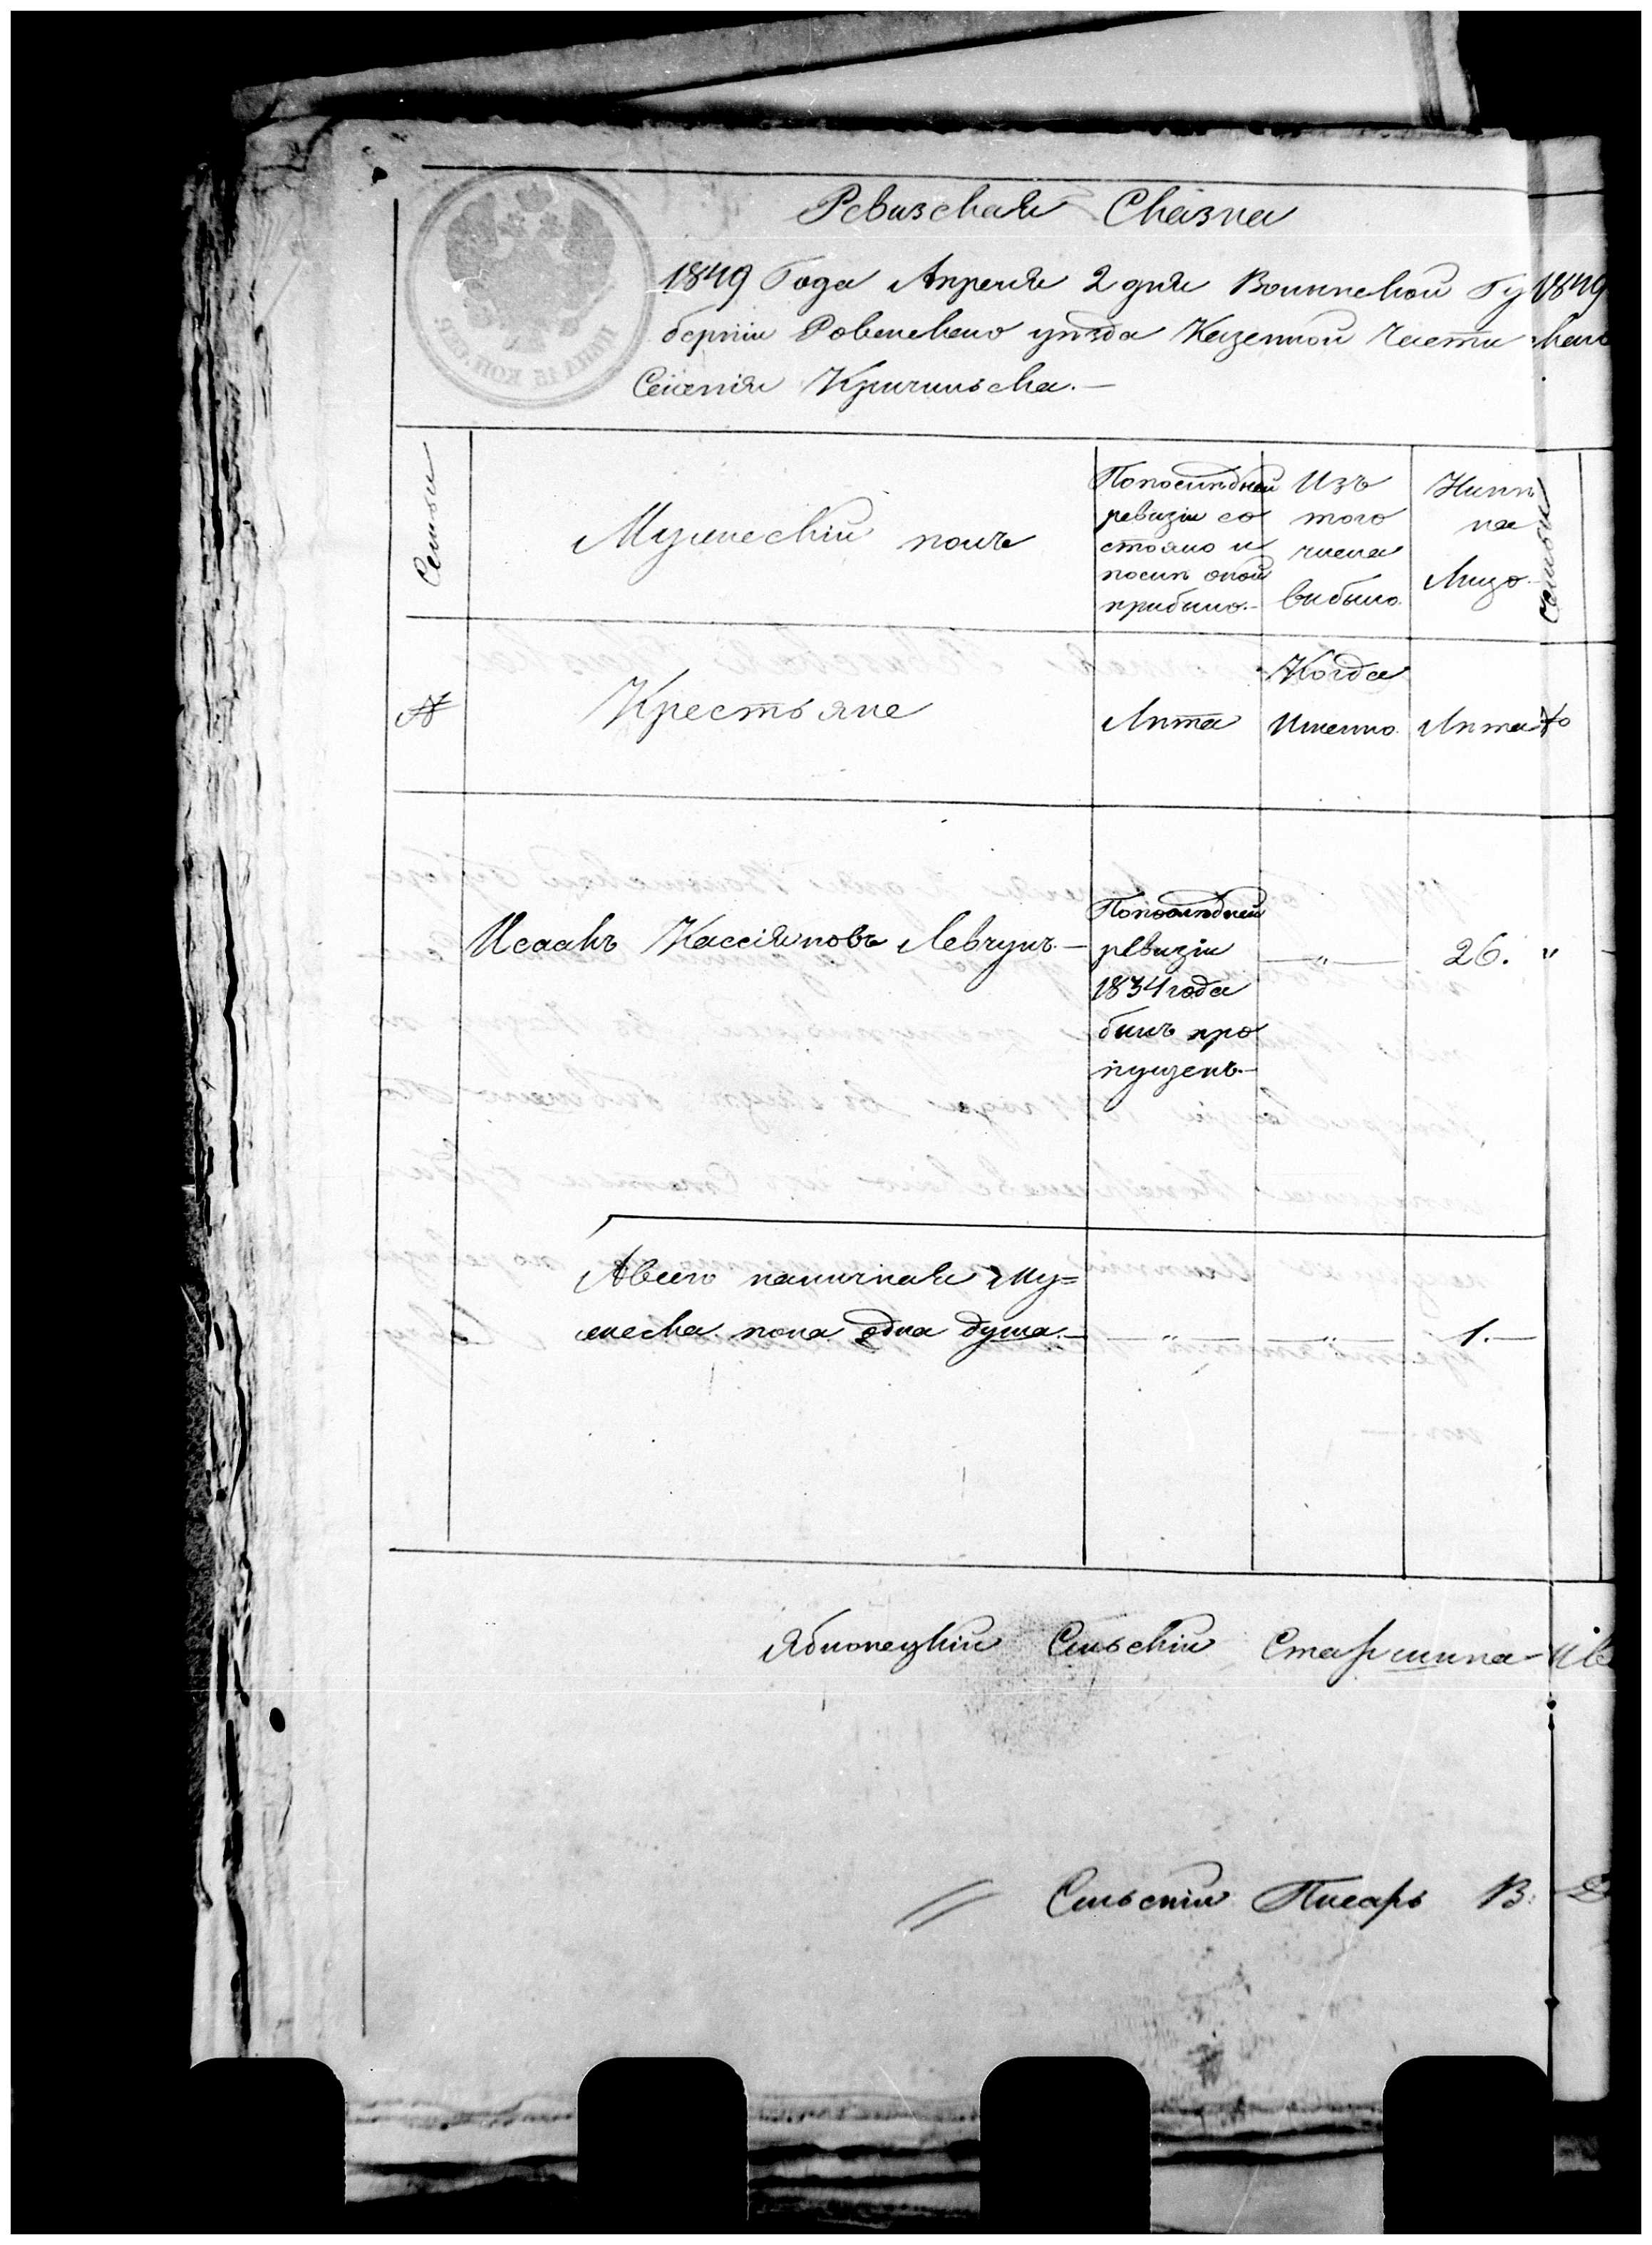 Ревизская Сказка
1849 Года Апреля 2 дня Волынской Гу
берніи Ровенскаго уѣзда Казенной Части
Селенія Кричильска.—
Семьи
Мужескій полъ
Попослѣдней
ревизіи со
стояло и
послѣ оной
прибыло.-
Изъ
того
числа
выбыло.
Нынѣ
на
Лицо.
Семьи
№
Крестьяне
Лѣта
Когда
Именно.
Лѣта
№
Исаакъ Кассіяновъ Левчукъ.—
Попослѣдней
ревизіи
1834 года
былъ про
пущенъ.—
— „ —
26. "
Авсего наличная Му=
жеска пола одна душа.—
— „ — — „ — 1.—
Яблонецкій Сельскій Старшина
Сельскій Писарь В.
1849
ЦѢНА 15 КОП. СЕР.